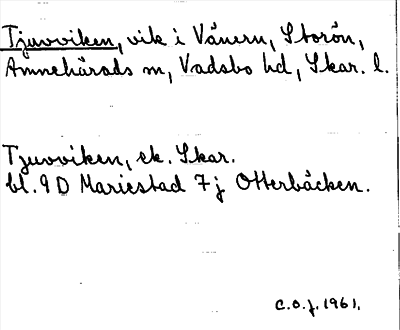 Tjuvviken, vik i Vänern, Storön,
Amnehärads sn, Vadsbo hd, Skar. l.
Tjuvviken, ek. Skar.
bl. 9 D Mariestad 7j Otterbäcken.
C.O.J. 1961.